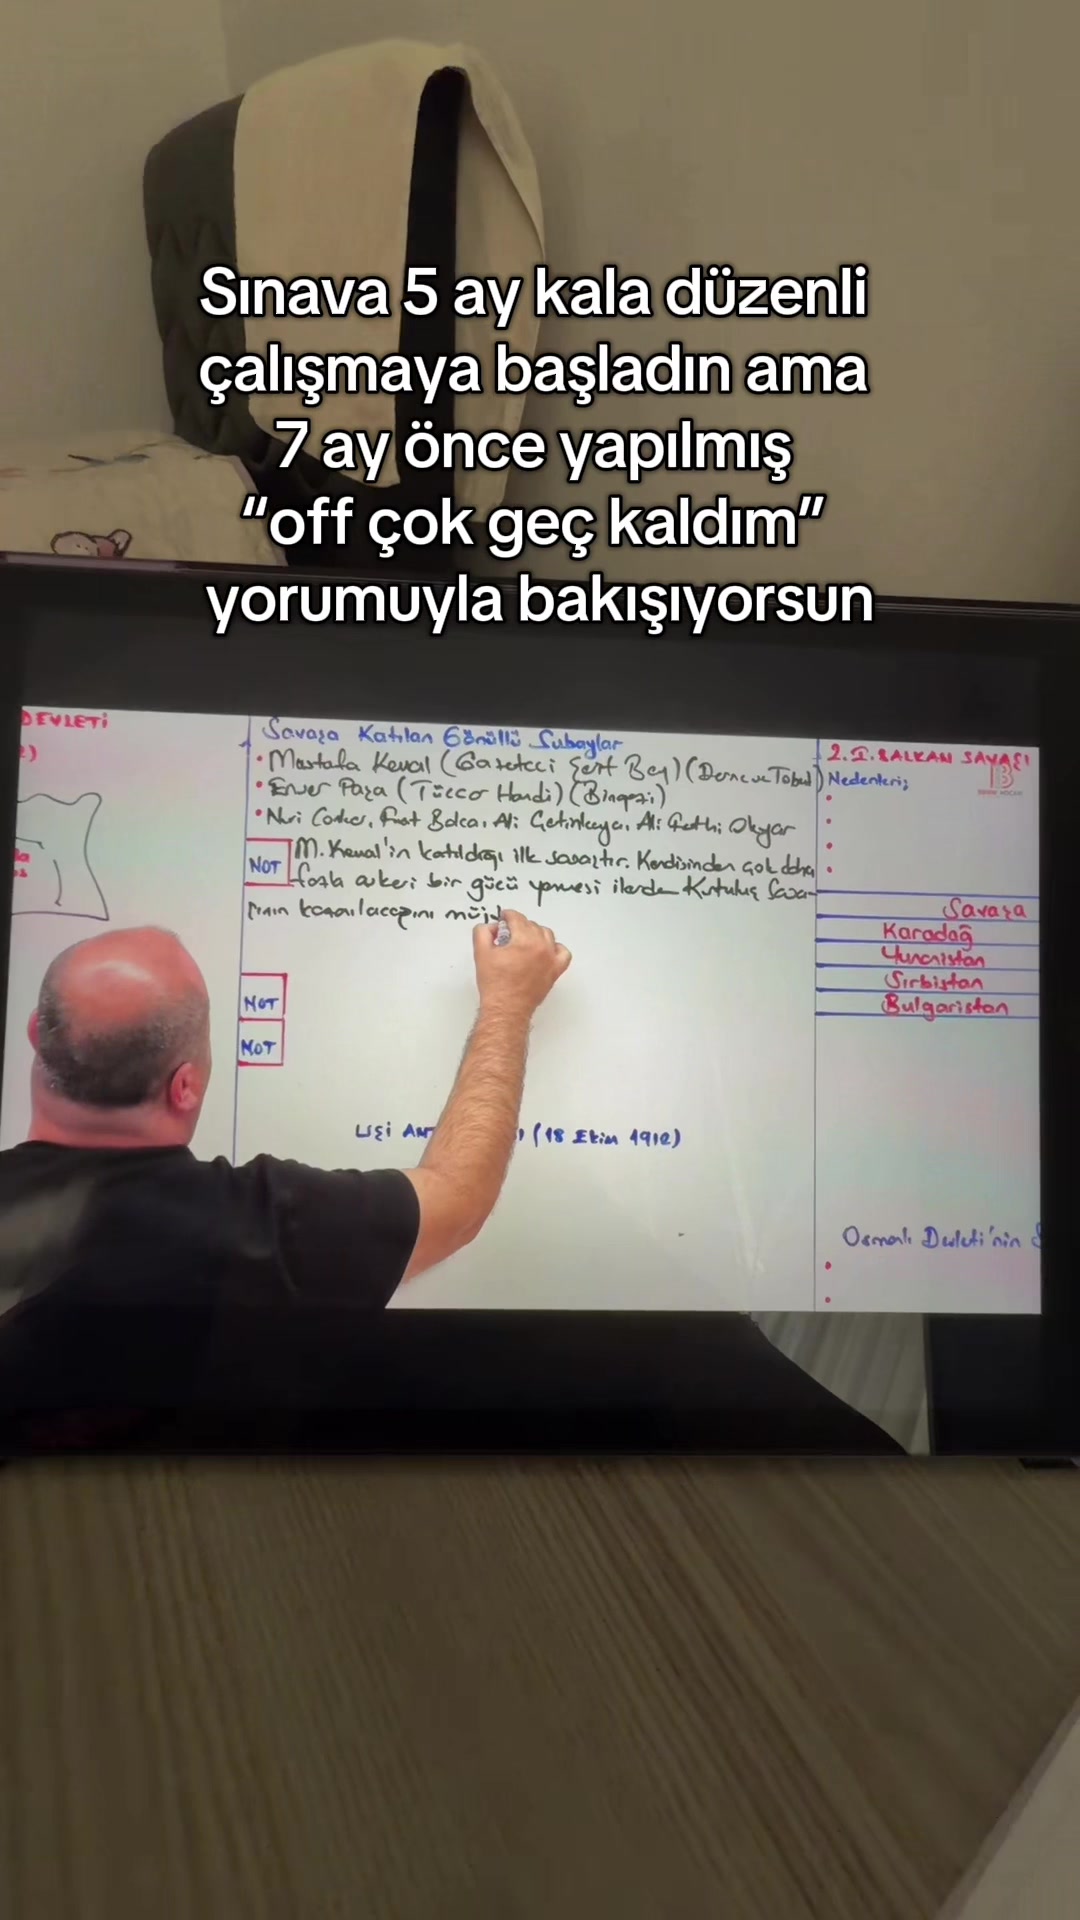 Sınava 5 ay kala düzenli
çalışmaya başladın ama
7 ay önce yapılmış
“off çok geç kaldım”
yorumuyla bakışıyorsun
DEVLETİ
Savaşa Katılan Gönüllü Subaylar
• Mustafa Kemal (Gazeteci Şerif Bey) (Derne ve Tobruk)
• Enver Paşa (Tüccar Hamdi) (Bingazi)
• Nuri Conker, Fuat Bulca, Ali Çetinkaya, Ali Fethi Okyar
NOT
M. Kemal'in katıldığı ilk savaştır. Kendisinden çok daha
fazla askeri bir gücü yenmesi ilerde Kurtuluş Sava-
şının kazanılacağını müj
NOT
NOT
UŞİ AN (18 Ekim 1912)
2. I. BALKAN SAVAŞI
Nedenleri;
Savaşa
Karadağ
Yunanistan
Sırbistan
Bulgaristan
Osmanlı Devleti'nin